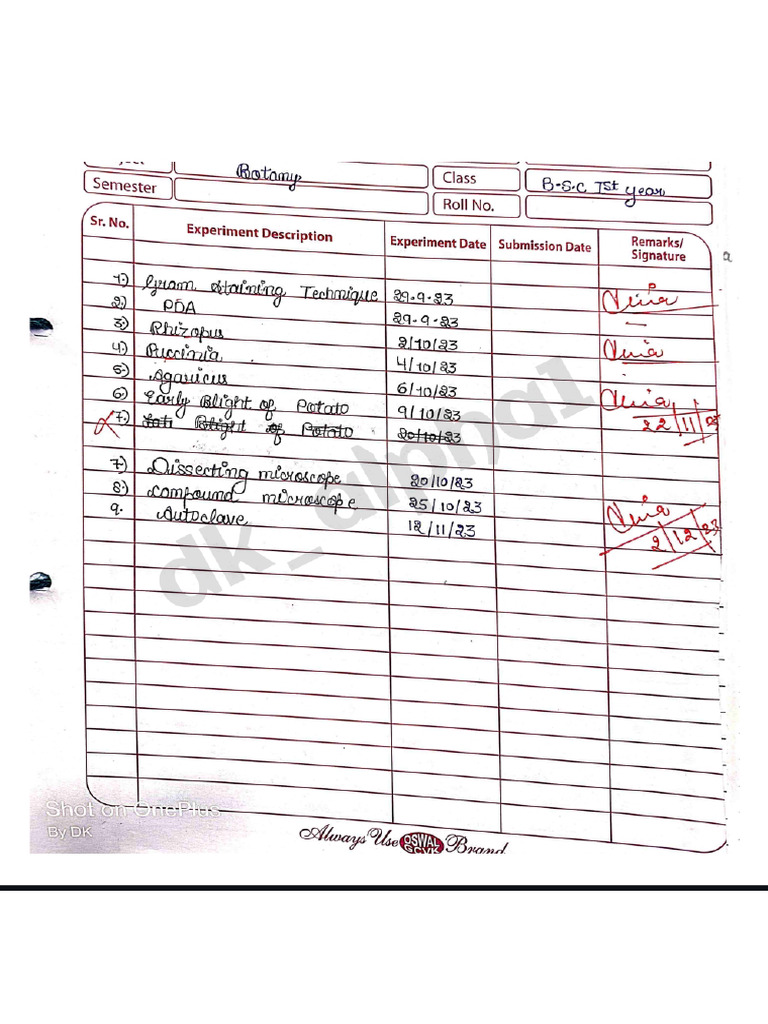 Botany
Class
B.S.C Ist year
Semester
Roll No.
Sr. No.
Experiment Description
Experiment Date
Submission Date
Remarks/
Signature
1.) Gram Staining Technique 29.9.23
2.) PDA 29.9.23
3.) Rhizopus 2/10/23
4.) Puccinia 4/10/23
5.) Agaricus 6/10/23
6.) Early Blight of Potato 9/10/23
7.) Late Blight of Potato 20/10/23
22/11/23
7.) Dissecting microscope 20/10/23
8.) Compound microscope 25/10/23
9. Autoclave 12/11/23
2/12/23
dk_alpha1
Shot on OnePlus
By DK
Always Use OSWAL Brand